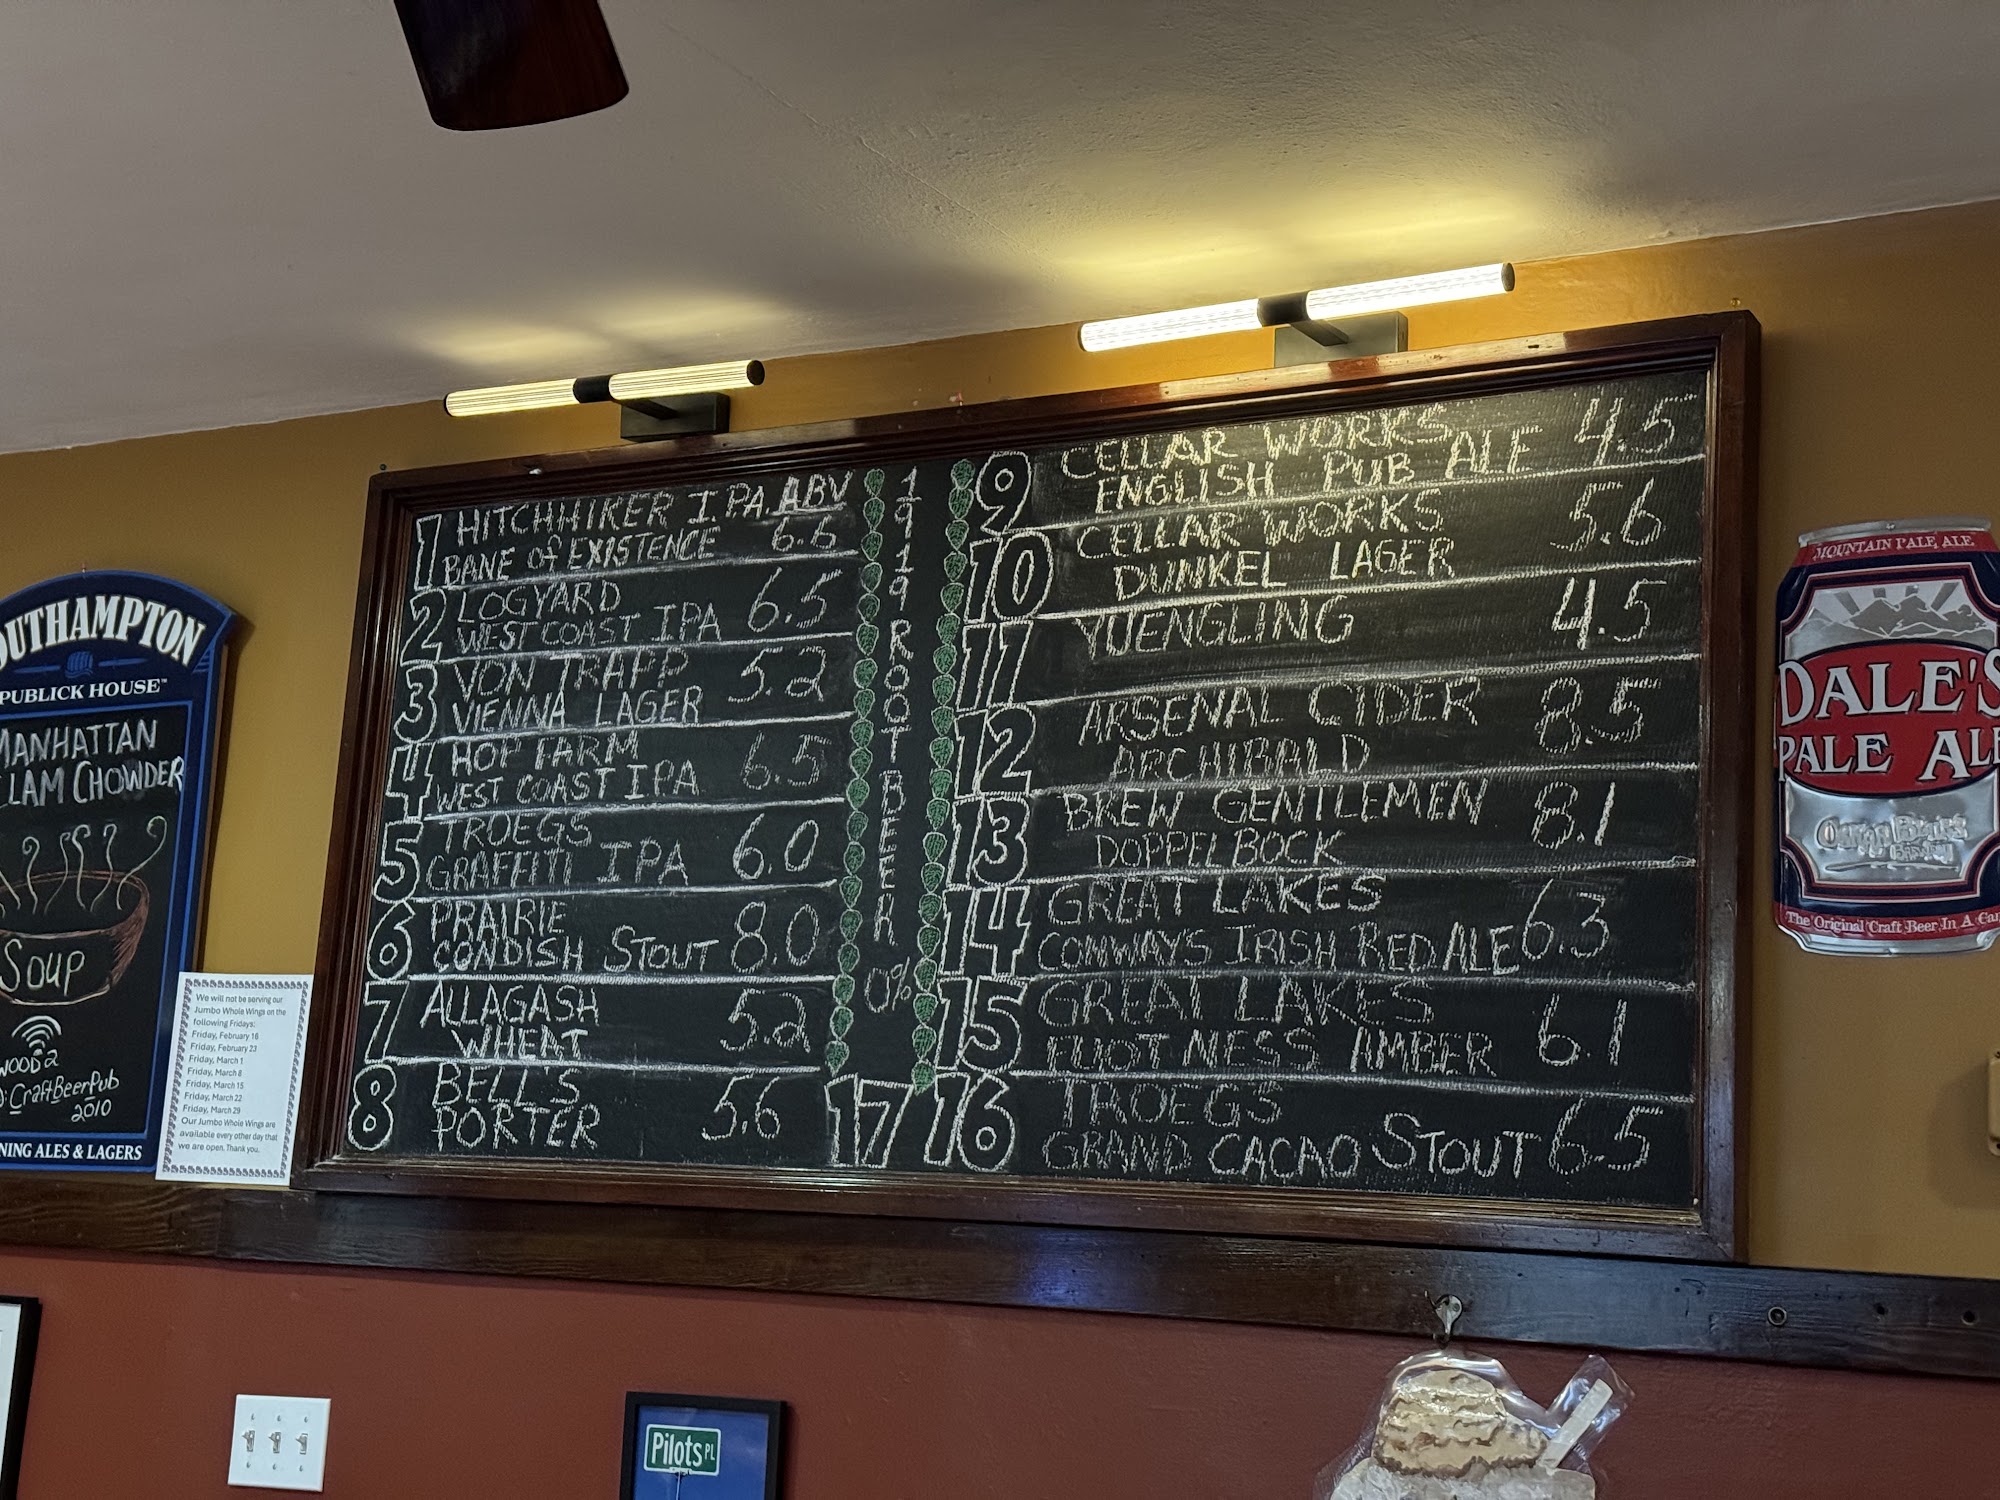 1 HITCHHIKER I.P.A. ABV
BANE OF EXISTENCE 6.6
2 LOGYARD
WEST COAST IPA 6.5
3 VON TRAPP
VIENNA LAGER 5.2
4 HOP FARM
WEST COAST IPA 6.5
5 TROEGS
GRAFFITI IPA 6.0
6 PRAIRIE
CONDISH STOUT 8.0
7 ALLAGASH
WHEAT 5.2
8 BELL'S
PORTER 5.6
1919 ROOT BEER
0%
17
9 CELLAR WORKS
ENGLISH PUB ALE 4.5
10 CELLAR WORKS
DUNKEL LAGER 5.6
11 YUENGLING 4.5
12 ARSENAL CIDER
ARCHIBALD 8.5
13 BREW GENTLEMEN
DOPPELBOCK 8.1
14 GREAT LAKES
CONWAYS IRISH RED ALE 6.3
15 GREAT LAKES
ELIOT NESS AMBER 6.1
16 TROEGS
GRAND CACAO STOUT 6.5
OUTHAMPTON
PUBLICK HOUSE™
MANHATTAN
CLAM CHOWDER
SOUP
WOOD2
D: CraftBeerPub
2010
NING ALES & LAGERS
We will not be serving our
Jumbo Whole Wings on the
following Fridays:
Friday, February 16
Friday, February 23
Friday, March 1
Friday, March 8
Friday, March 15
Friday, March 22
Friday, March 29
Our Jumbo Whole Wings are
available every other day that
we are open. Thank you.
MOUNTAIN PALE ALE
DALE'S
PALE ALE
Oskar Blues
Brewery
The Original Craft Beer In A Can
Pilots PL